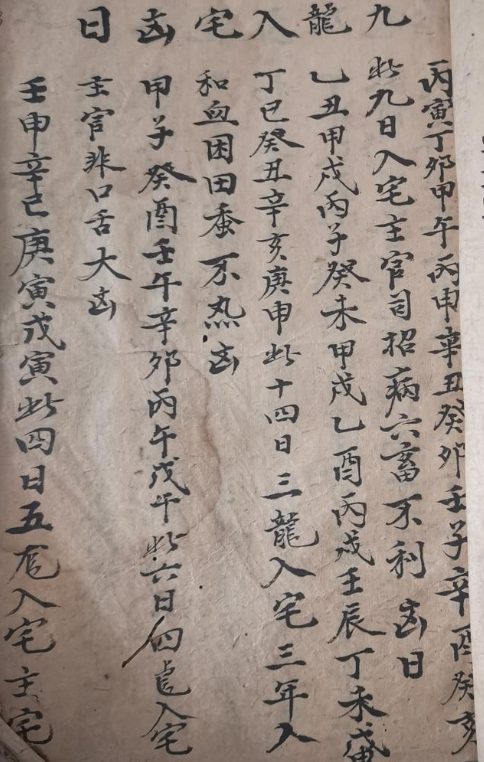 九龍入宅凶日
丙寅丁卯甲午丙申辛丑癸卯壬子辛酉癸亥
此九日入宅主官司招病六畜不利凶日
乙丑甲戌丙子癸未甲戌乙酉丙戌壬辰丁未
丁巳癸丑辛亥庚申此十四日三龍入宅三年入
和血困田蚕不热凶
甲子癸酉壬午辛卯丙午戊午此六日四入宅
主官非口舌大凶
壬申辛巳庚寅戊寅此四日五入宅主宅